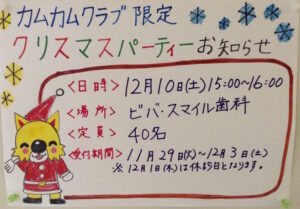 カムカムクラブ限定
クリスマスパーティーお知らせ
<日時>12月10日(土)15:00~16:00
<場所>ビバ・スマイル歯科
<定員>40名
<受付期間>11月29日(火)~12月3日(土)
※12月1日(木)は休診日となります。